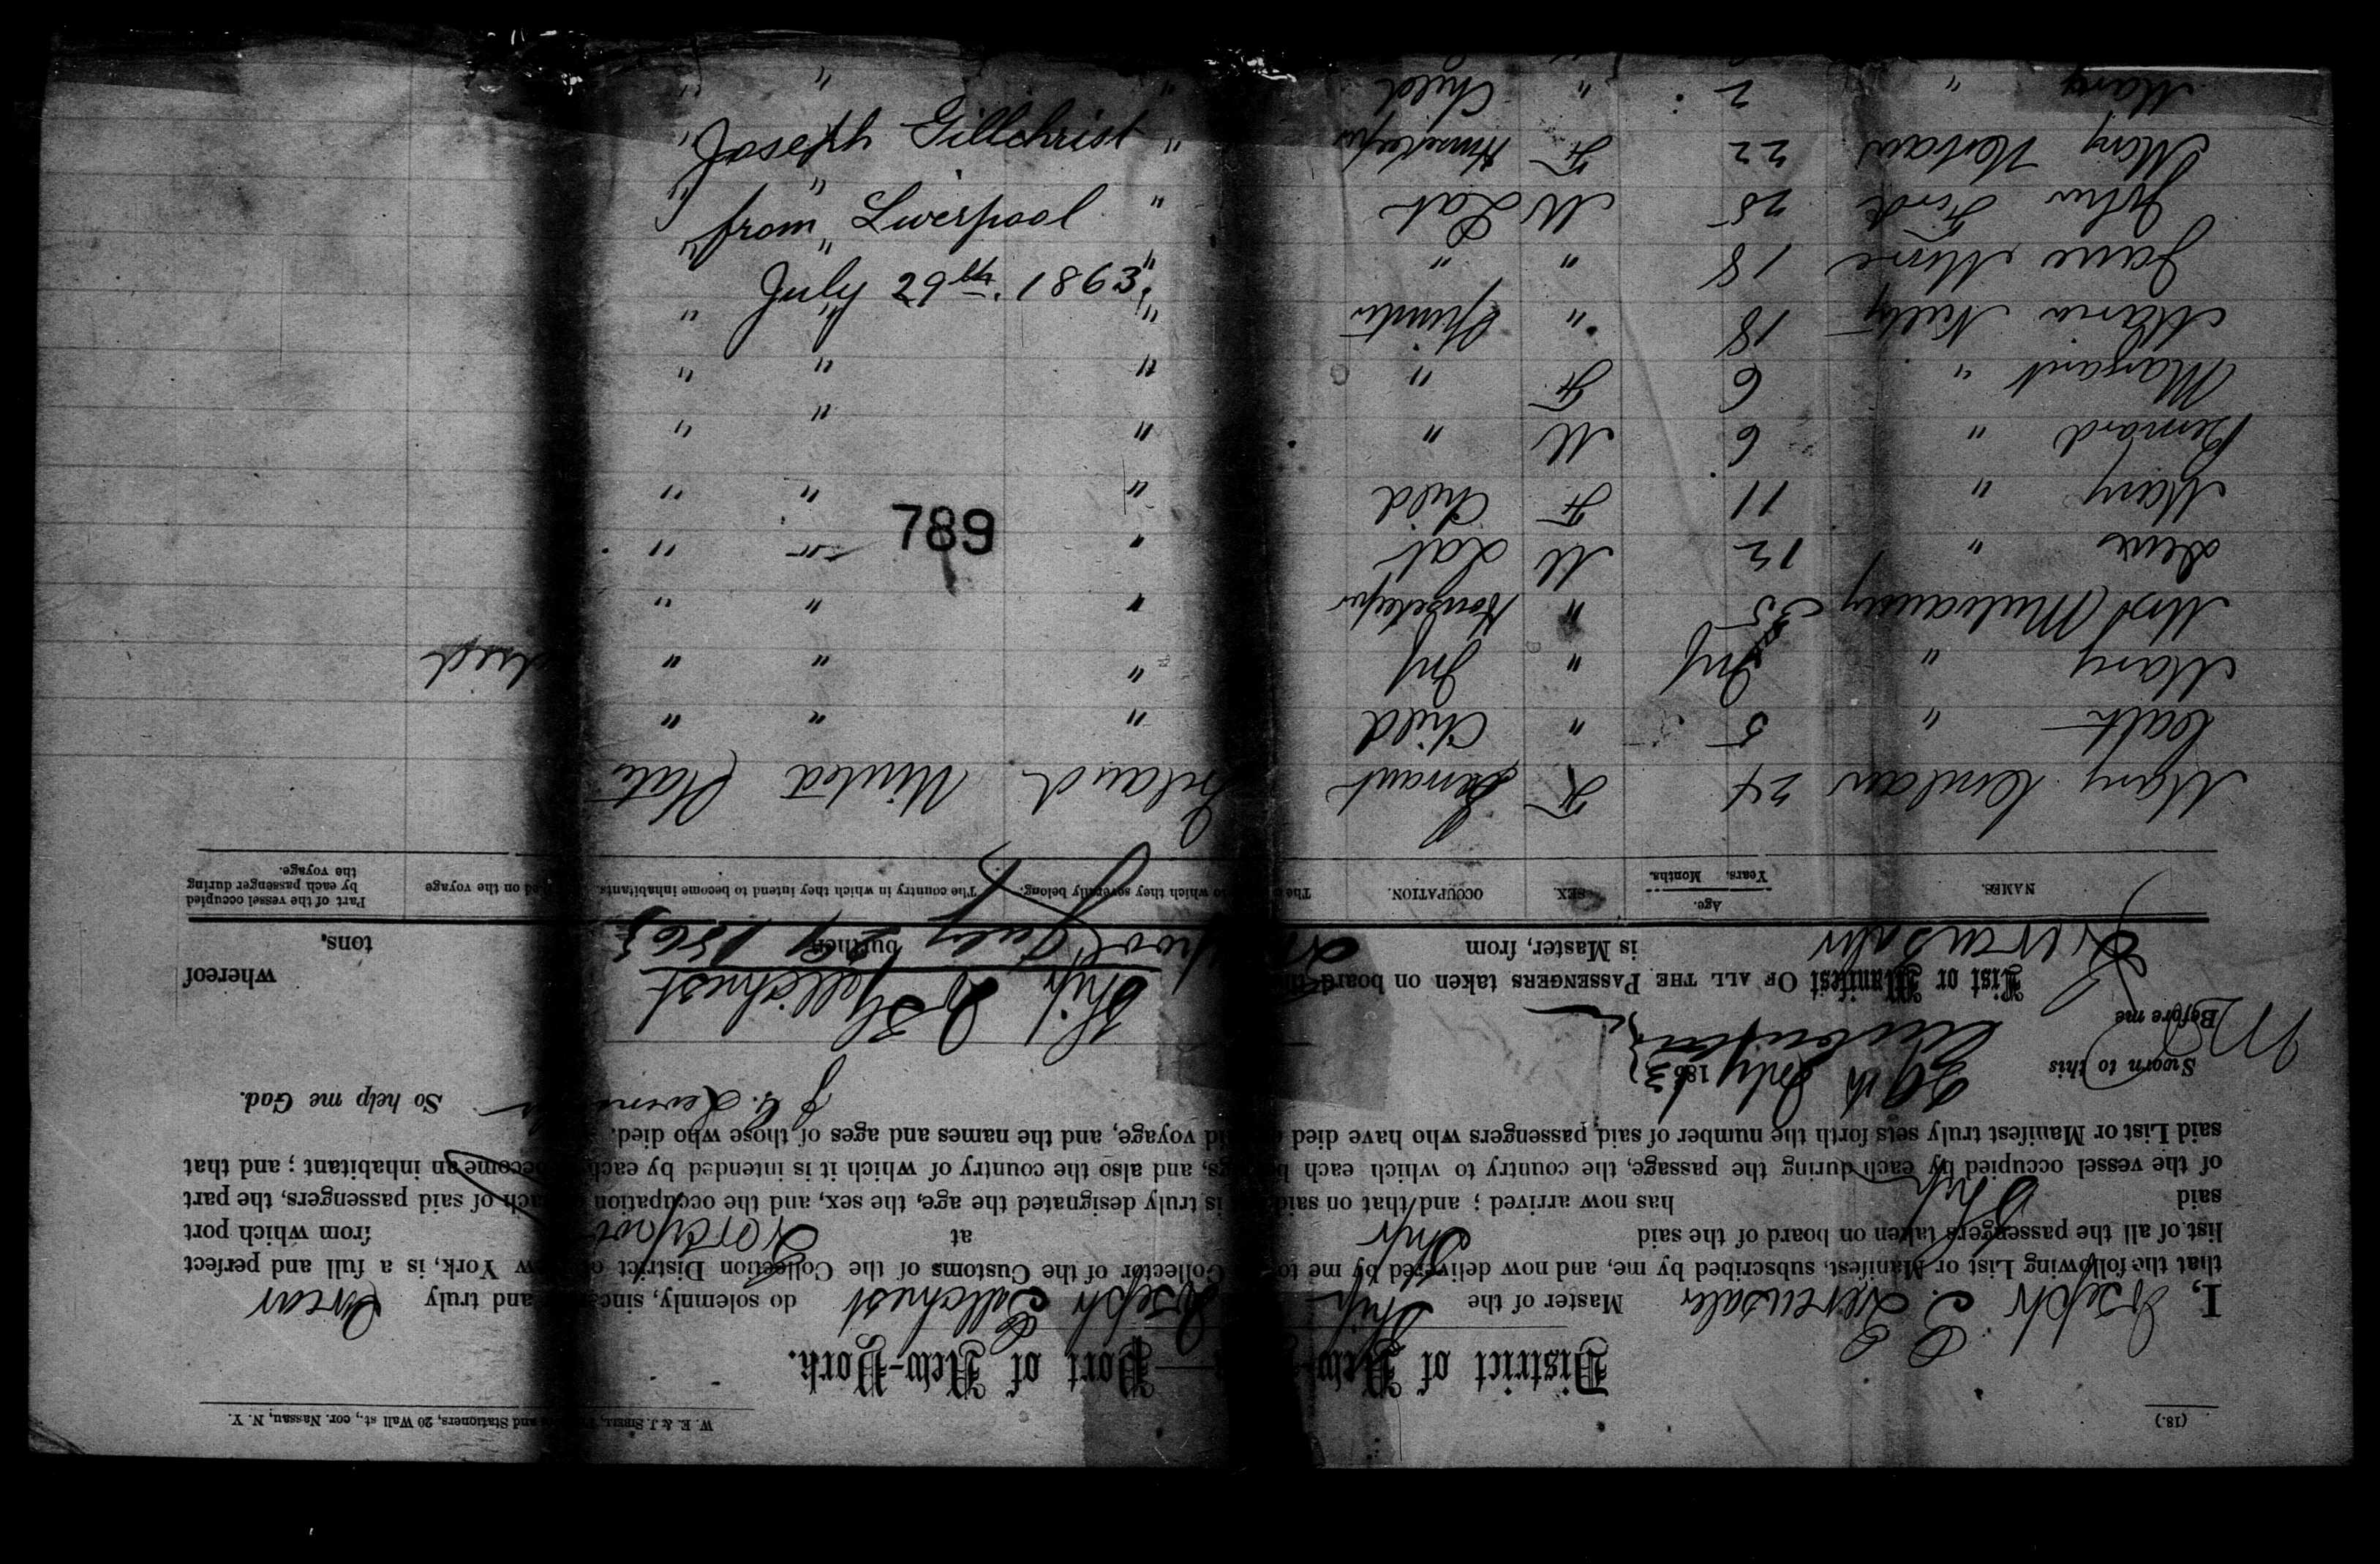 (18.) W. E. & J. Sibell, and Stationers, 20 Wall st., cor. Nassau, N. Y.
District of New-York—Port of New-York.
I, Joseph Master of the Ship Joseph Gillchrist do solemnly, and truly Swear
that the following List or Manifest, subscribed by me, and now delivered by me to Collector of the Customs of the Collection District of New York, is a full and perfect
list of all the passengers taken on board of the said Ship at Liverpool from which port
said Ship has now arrived; and that on said is truly designated the age, the sex, and the occupation of each of said passengers, the part
of the vessel occupied by each during the passage, the country to which each belongs, and also the country of which it is intended by each become an inhabitant; and that
said List or Manifest truly sets forth the number of said passengers who have died said voyage, and the names and ages of those who died.
So help me God.
Sworn to this 29th July 1863
Before me
List or Manifest OF ALL THE PASSENGERS taken on board the Ship Gillchrist whereof
is Master, from burthen tons.
July 29 1863
NAMES. Age. Years, Months. SEX. OCCUPATION. The to which they severally belong. The country in which they intend to become inhabitants. Died on the voyage Part of the vessel occupied by each passenger during the voyage.
Mary 24 F Servant Ireland United States
Cath " 5 " Child " " "
Mary " Inf " Inf " " " died
Mrs Mulvaney 35 " Housekeeper " " "
" 12 M Lab " " "
Mary " 11 F Child " " "
Bernard " 6 M " " " "
Margaret " 6 F " " " "
Maria 18 " Spinster " " "
Jane 18 " " " " "
John Ford 25 M Lab " " "
Mary 22 F Housekeeper " " "
Mary " 2 " Child " " "
Joseph Gillchrist
from Liverpool
July 29th. 1863.
789